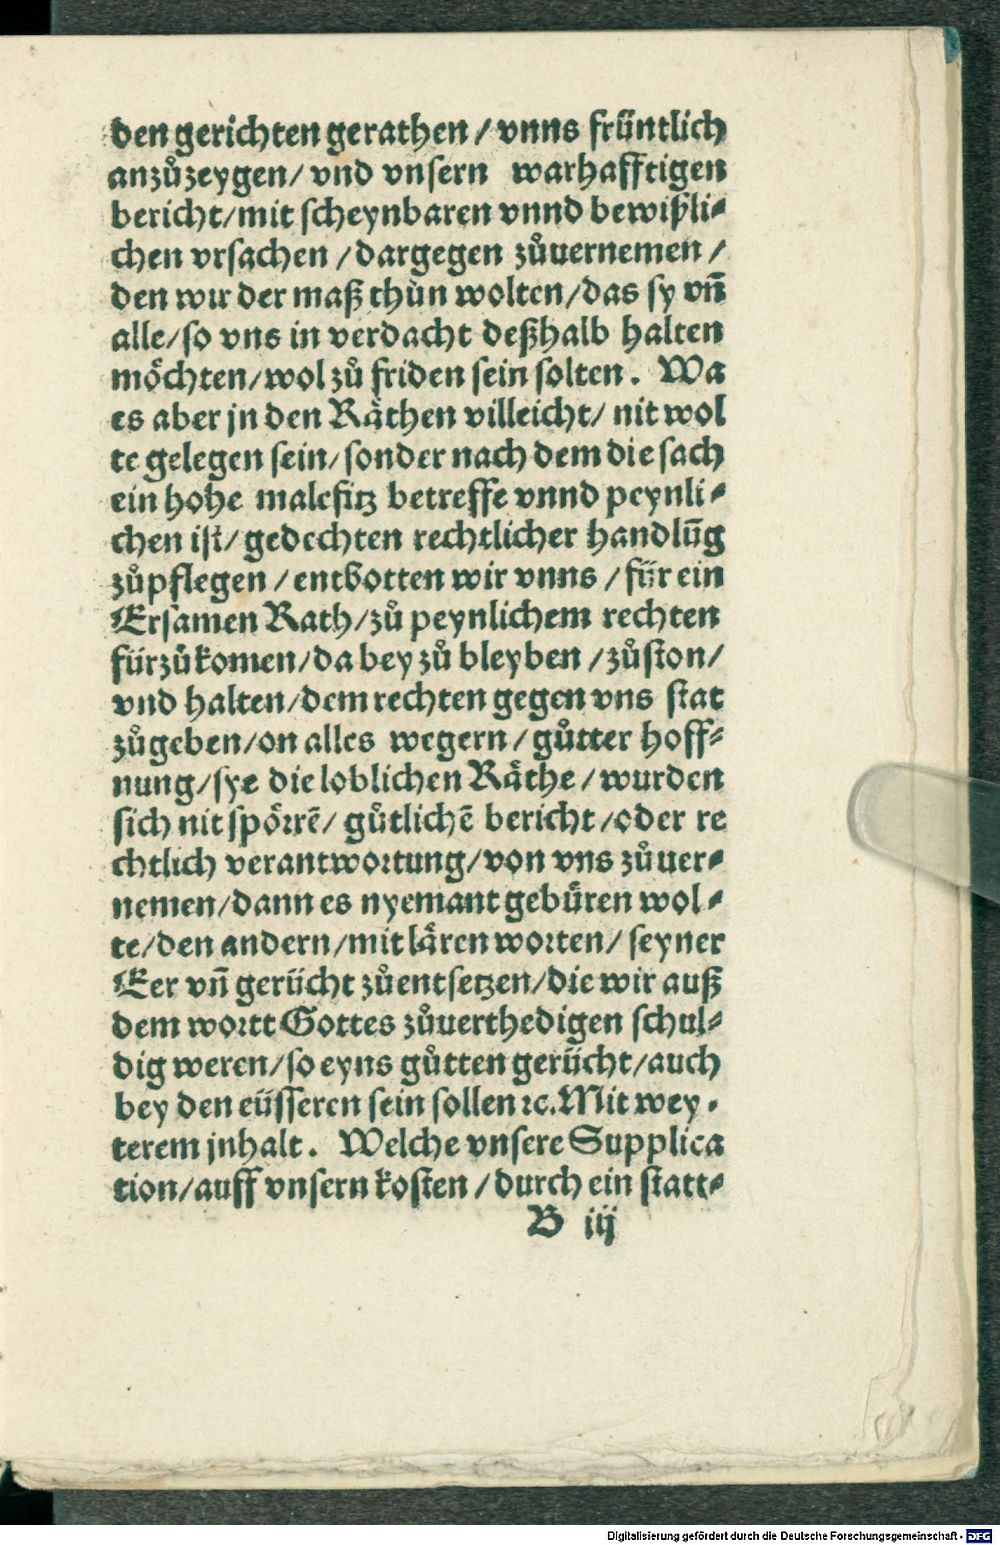 den gerichten gerathen / vnns früntlich
anzůzeygen/ vnd vnsern warhafftigen
bericht/mit scheynbaren vnnd bewißli⸗
chen vrsachen /dargegen zůuernemen /
den wir der maß thůn wolten/das sy vñ
alle/so vns in verdacht deßhalb halten
möchten/wol zů friden sein solten. Wa
es aber jn den Räthen villeicht/ nit wol
te gelegen sein/sonder nach dem die sach
ein hohe malefitz betreffe vnnd peynli⸗
chen ist/ gedechten rechtlicher handlūg
zůpflegen /entbotten wir vnns /für ein
Ersamen Rath/zů peynlichem rechten
fürzůkomen/da bey zů bleyben /zůston/
vnd halten/dem rechten gegen vns stat
zůgeben/on alles wegern/ gůtter hoff⸗
nung/sye die loblichen Räthe/ wurden
sich nit spörrē/ gůtlichē bericht/oder re
chtlich verantwortung/von vns zůuer⸗
nemen/dann es nyemant gebüren wol⸗
te/den andern/mit lären worten/ seyner
Eer vñ gerücht zůentsetzen/die wir auß
dem wortt Gottes zůuerthedigen schul⸗
dig weren/so eyns gůtten gerücht/auch
bey den eüsseren sein sollen ꝛc.Mit wey⸗
terem jnhalt. Welche vnsere Supplica
tion/auff vnsern kosten /durch ein statt⸗
B iij
Digitalisierung gefördert durch die Deutsche Forschungsgemeinschaft - DFG